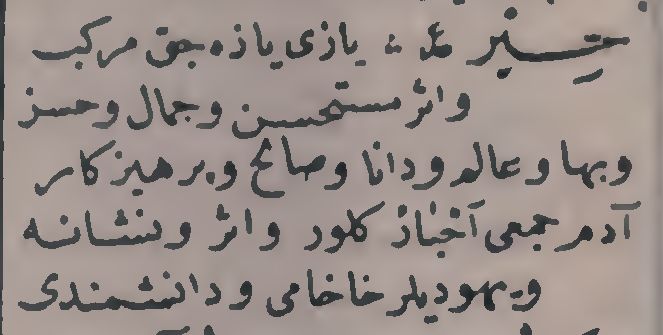 حبر ع ... یازی یازه‌جق مرکب
واثر مستحسن وجمال وحسن
وبها وعالم ودانا وصالح وپرهیزکار
آدم جمعی آخباز کلور واثر ونشانه
ویهودیلر خاخامی ودانشمندی